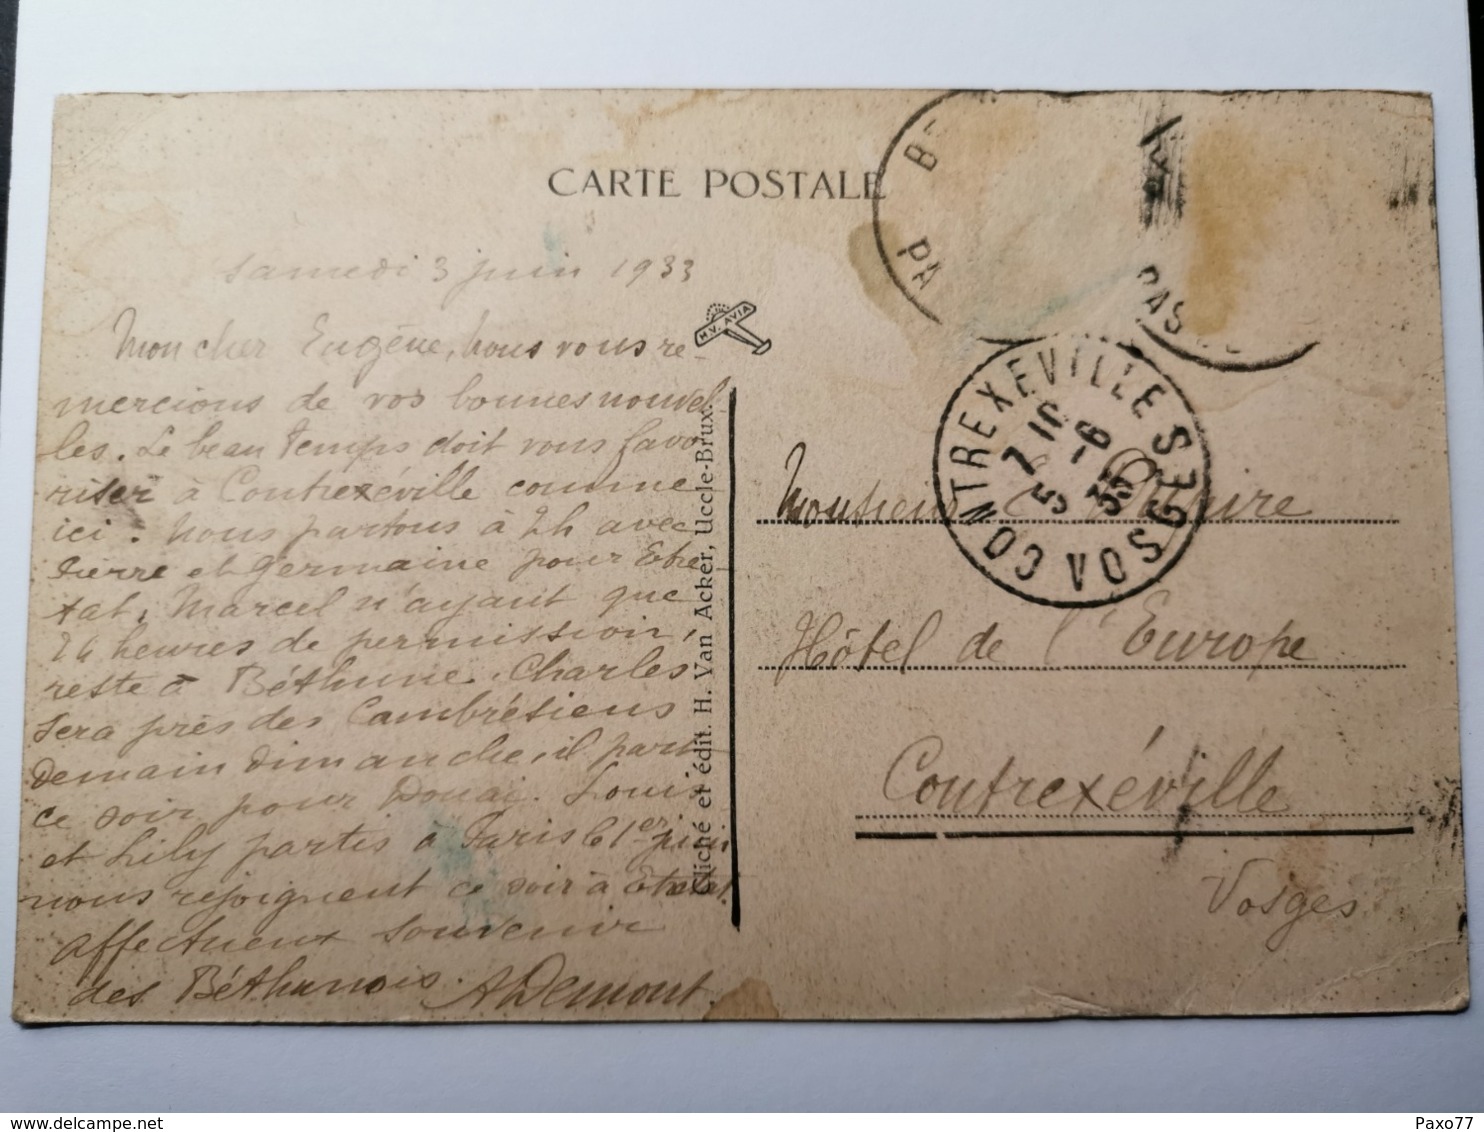 CARTE POSTALE
B
PA
PAS
samedi 3 juin 1933
Mon cher Eugène, nous vous re-
mercions de vos bonnes nouvel-
les. Le beau temps doit vous favo-
riser à Contrexéville comme
ici. Nous partons à 2h avec
Pierre et Germaine pour Etre-
tat, Marcel n'ayant que
24 heures de permission,
reste à Béthune. Charles
sera près des Cambrésiens
demain dimanche, il part
ce soir pour Douai. Louis
et Lily partis à Paris le 1er juin
nous rejoignent ce soir à Etretat.
affectueux souvenir
des Béthunois. ADemont.
H.V. AVIA
Cliché et édit. H. Van Acker, Uccle-Brux.
CONTREXEVILLE VOSGES
-6
33
Monsieur
Hôtel de l'Europe
Contrexéville
Vosges
Paxo77